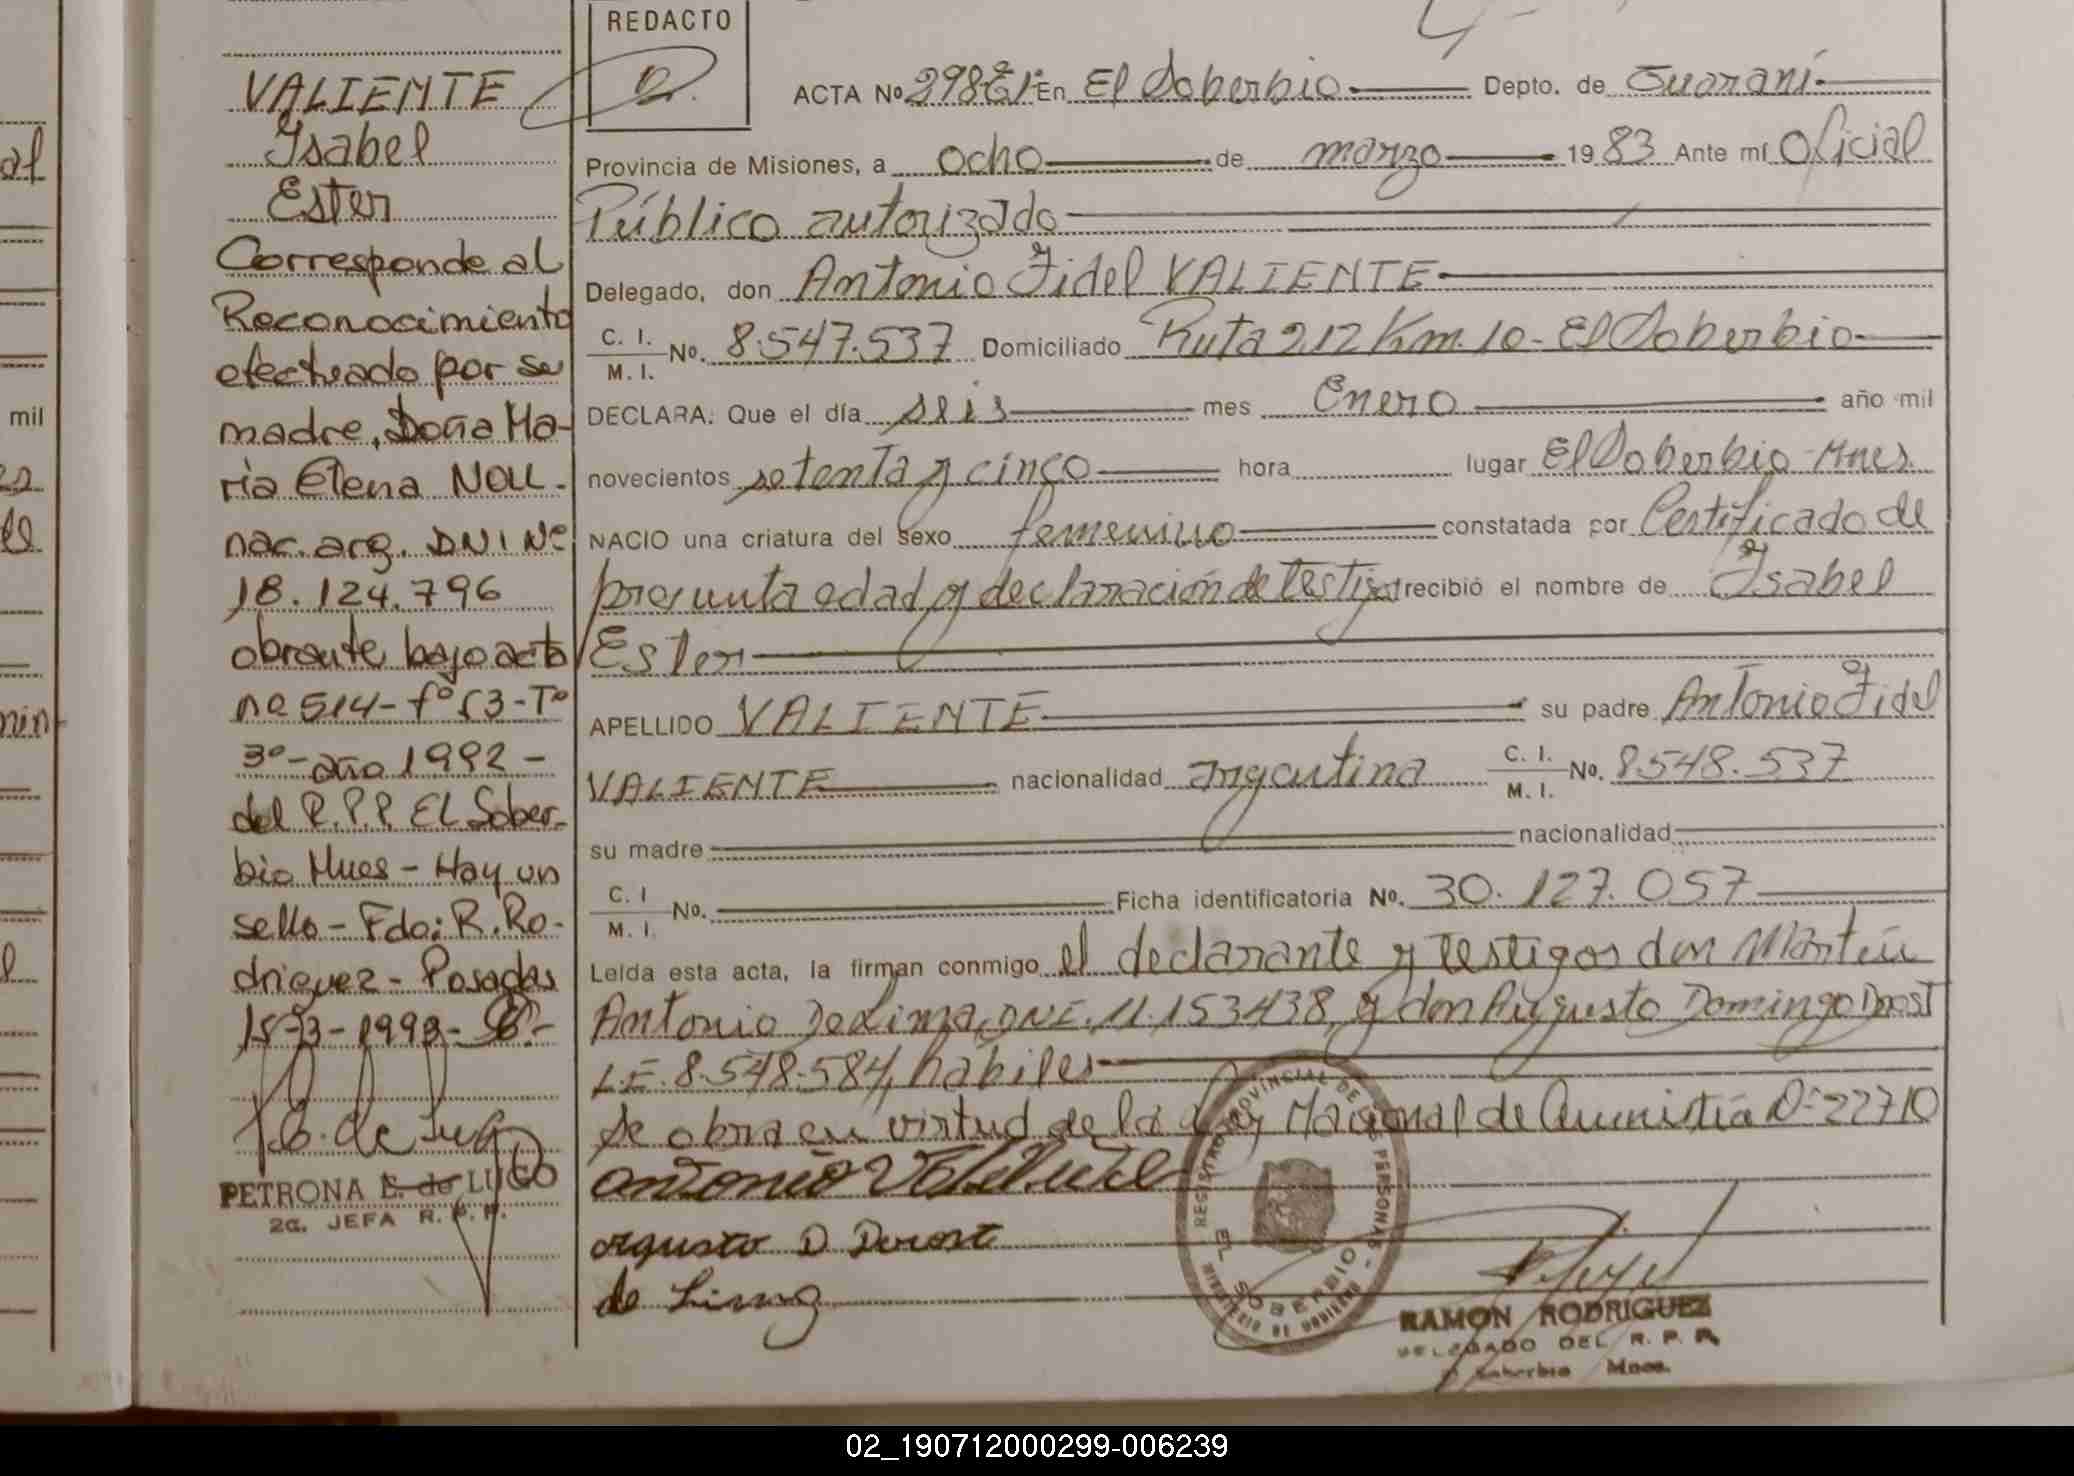 al
mil
VALIENTE
Ysabel
Ester
Corresponde al
Reconocimiento
efectuado por su
madre, Doña Ma-
ría Elena NOLL -
nac. arg. DNI Nº
18.124.796
obrante bajo acta
nº 514 - fº 53 - Tº
3º - año 1992 -
del R.P.P. El Sober-
bio Mnes - Hay un
sello - Fdo: R. Ro-
driguez - Posadas
15-3-1993 -
PETRONA E. de LUGO
2a. JEFA R. P. P.
REDACTO
ACTA Nº 298 En El Soberbio Depto. de Guaraní
Provincia de Misiones, a ocho de marzo 1983 Ante mí Oficial
Público autorizado
Delegado, don Antonio Fidel VALIENTE
C. I. M. I. No. 8.547.537 Domiciliado Ruta 212 Km. 10 - El Soberbio
DECLARA: Que el día seis mes Enero año mil
novecientos setenta y cinco hora lugar El Soberbio - Mnes
NACIO una criatura del sexo femenino constatada por Certificado de
presunta edad y declaración de testigos recibió el nombre de Ysabel
Ester
APELLIDO VALIENTE su padre Antonio Fidel
VALIENTE nacionalidad Argentina C. I. M. I. No. 8.548.537
su madre nacionalidad
C. I M. I. No. Ficha identificatoria Nº. 30.127.057
Leída esta acta, la firman conmigo el declarante y testigos don Martín
Antonio De Lima, DNI. 11.153438 y don Augusto Domingo Dorst
L.E. 8.548.584, hábiles
Se obra en virtud de la Ley Nacional de Amnistía 22710
antonio Valiente
REGISTRO PROVINCIAL DE LAS PERSONAS
EL SOBERBIO
MINISTERIO DE GOBIERNO
de Lima
RAMON RODRIGUEZ
DELEGADO DEL R. P. P.
El Soberbio Mnes.
02_190712000299-006239